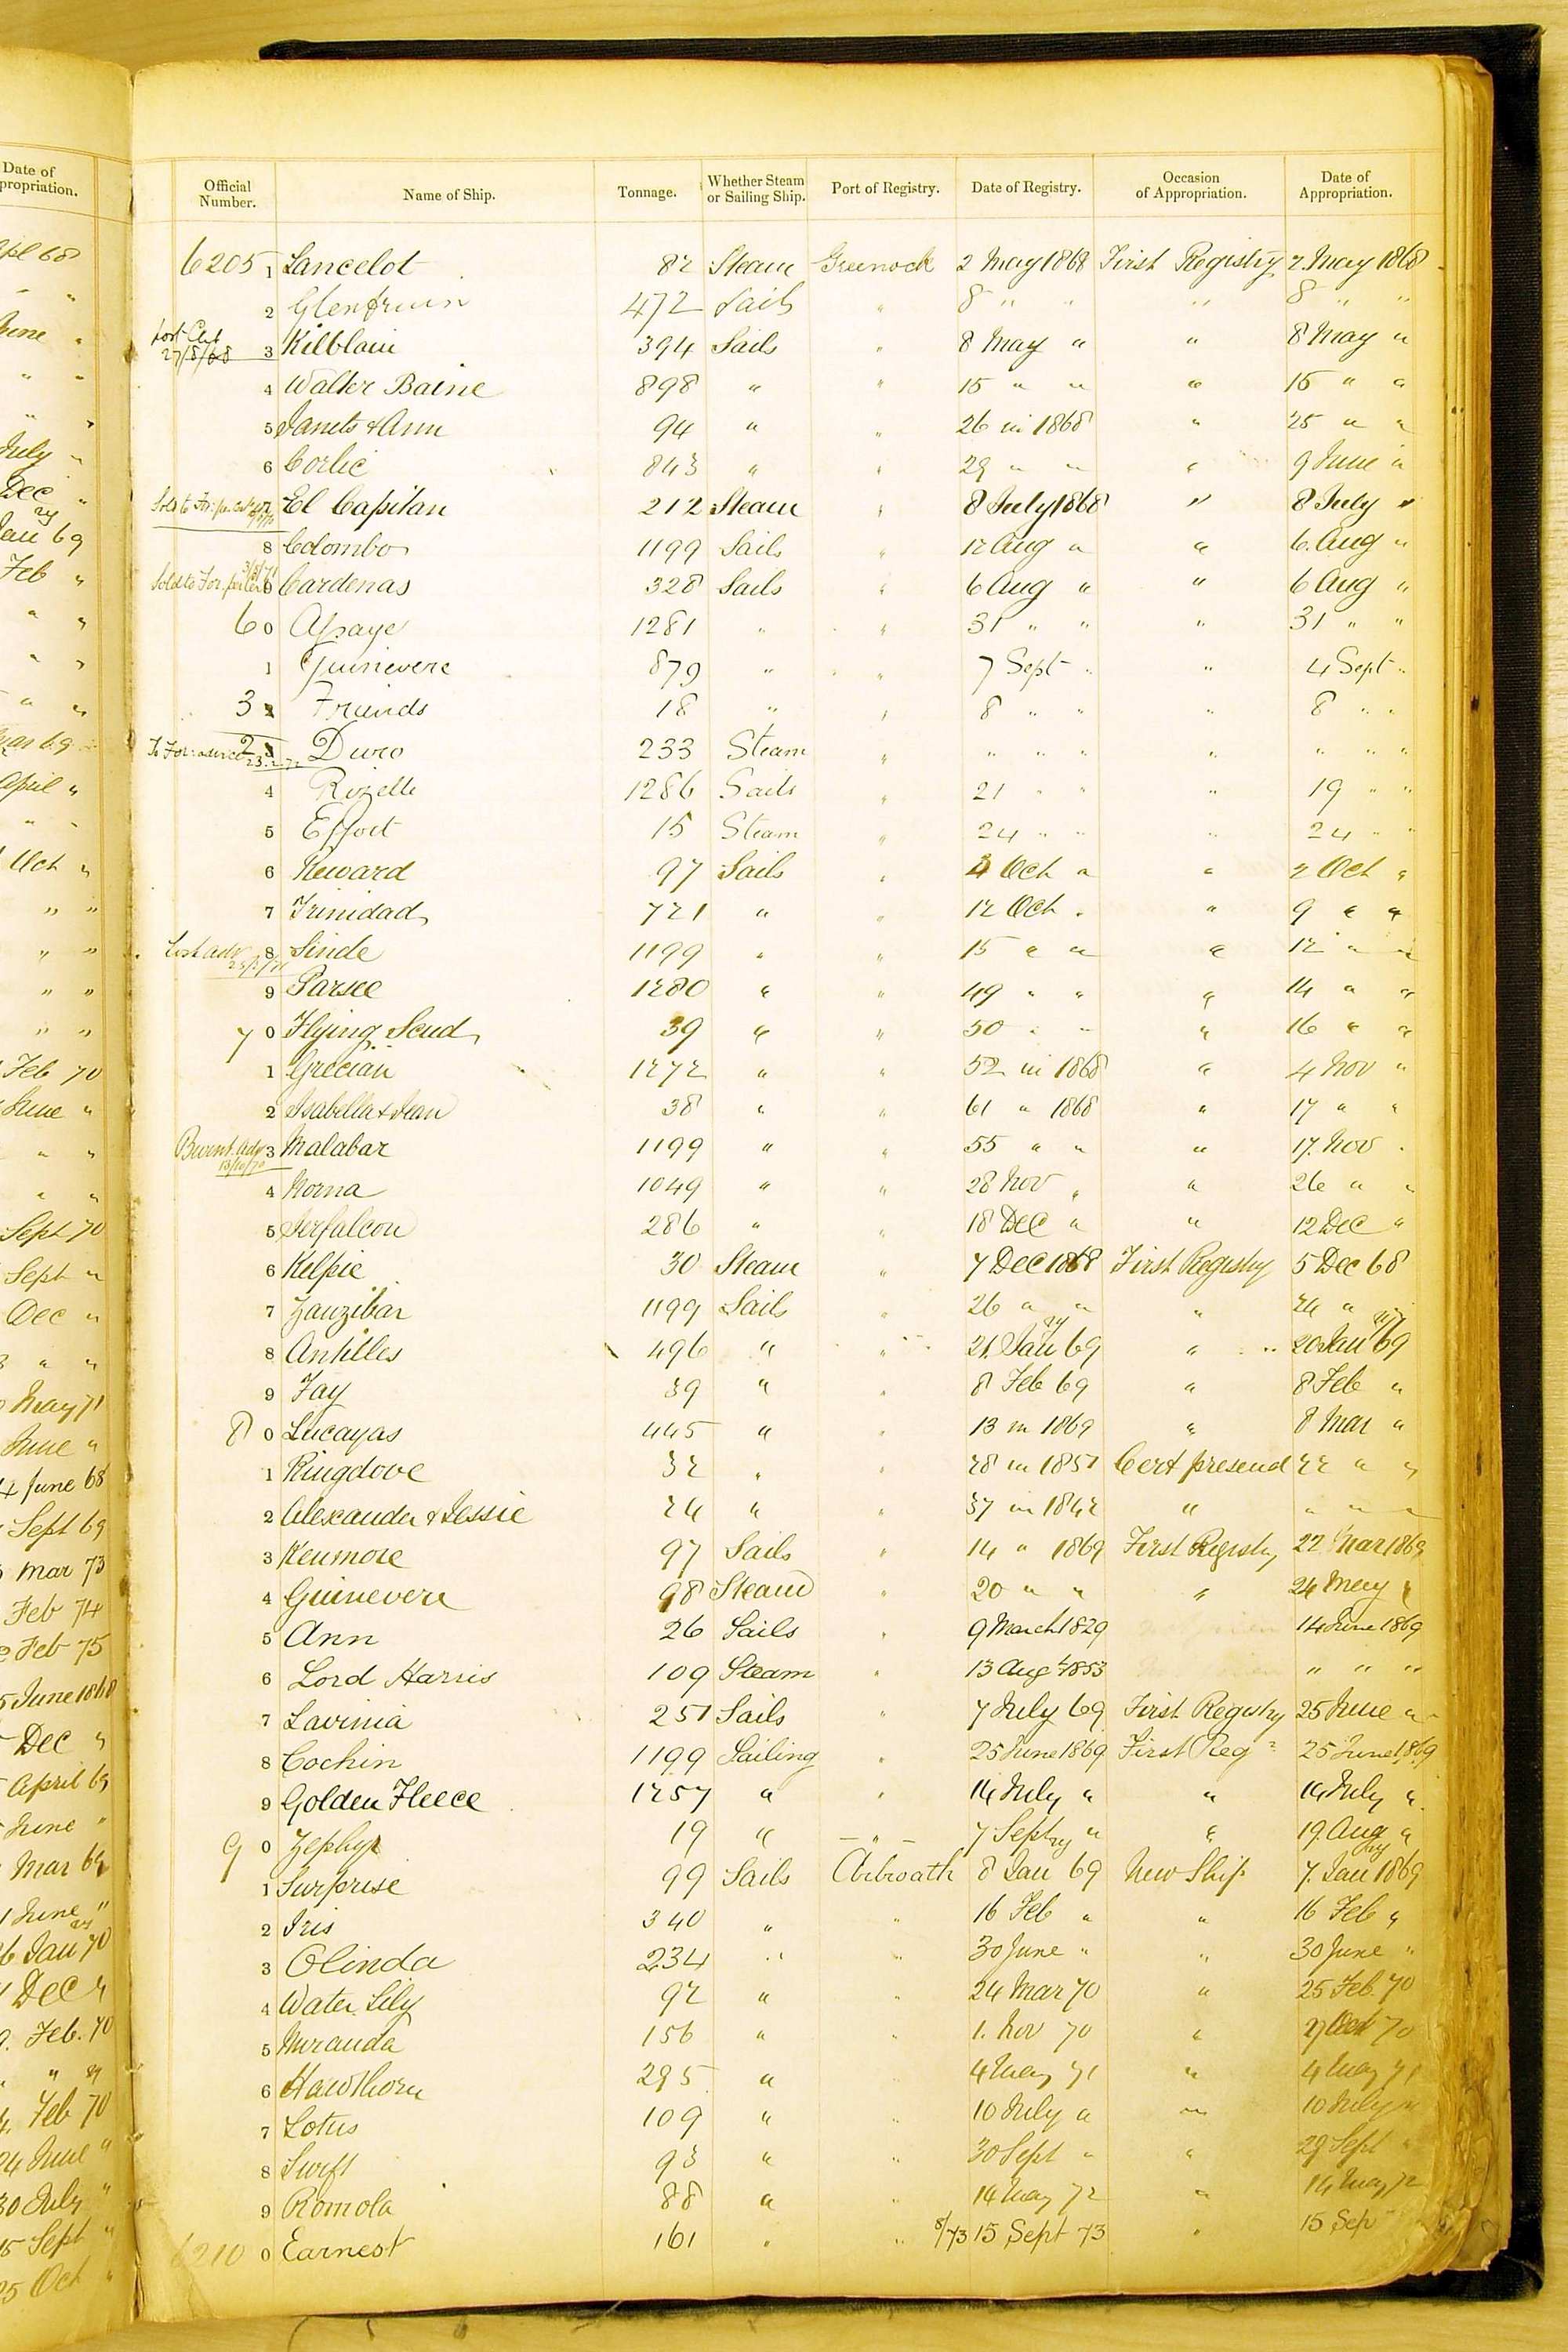 Date of
propriation.
Official Number. Name of Ship. Tonnage. Whether Steam or Sailing Ship. Port of Registry. Date of Registry. Occasion of Appropriation. Date of Appropriation.
6205 1 Lancelot 82 Steam Greenock 2 May 1868 First Registry 2 May 1868
2 Glenfruin 472 Sails " 8 " " " 8 " "
27/8/68 3 Kilblain 394 Sails " 8 May " " 8 May "
4 Walter Baine 898 " " 15 " " " 15 " "
5 Janets & Ann 94 " " 26 in 1868 " 25 " "
6 Corlic 843 " " 29 " " " 9 June "
Sold to For: El Capitan 212 Steam " 8 July 1868 " 8 July "
8 Colombo 1199 Sails " 12 Aug " " 6. Aug "
Sold to For. 9 Cardenas 328 Sails " 6 Aug " " 6 Aug "
6 0 Apaye 1281 " " 31 " " " 31 " "
1 Guinevere 879 " " 7 Sept " " 4 Sept "
3 Friends 18 " " 8 " " " 8 " "
2 Duro 233 Steam " " " " " " " "
4 Rozelle 1286 Sails " 21 " " " 19 " "
5 Effort 15 Steam " 24 " " " 24 " "
6 Reward 97 Sails " Oct " " 2 Oct "
7 Trinidad 721 " " 12 Oct " " 9 " "
8 Sinde 1199 " " 15 " " " 12 " "
9 Parsee 1280 " " 49 " " " 14 " "
7 0 Flying Scud 39 " " 50 " " " 16 " "
1 Grecian 1272 " " 52 in 1868 " 4 Nov "
2 Isabella & Jean 38 " " 61 " 1868 " 17 " "
Burnt adv 3 Malabar 1199 " " 55 " " " 17. Nov "
4 Norna 1049 " " 28 Nov " " 26 " "
5 Jerfalcon 286 " " 18 Dec " " 12 Dec "
6 Kelpie 30 Steam " 7 Dec 1868 First Registry 5 Dec 68
7 Zanzibar 1199 Sails " 26 " " " 24 " "
8 Antilles 496 " " 21. Jany 69 " 20 Jany 69
9 Fay 39 " " 8 Feb 69 " 8 Feb "
8 0 Lucayas 445 " " 13 in 1869 " 8 Mar "
1 Ringdove 32 " " 28 in 1857 Cert presend 22 " "
2 Alexander & Jessie 24 " " 37 in 1842 " " " "
3 Kenmore 97 Sails " 14 " 1869 First Registry 22 Mar 1869
4 Guinevere 98 Steam " 20 " " " 24 May "
5 Ann 26 Sails " 9 March 1829 14 June 1869
6 Lord Harris 109 Steam " 13 Augt 1853 " " "
7 Lavinia 251 Sails " 7 July 69 First Registry 25 June "
8 Cochin 1199 Sailing " 25 June 1869 First Reg 25 June 1869
9 Golden Fleece 1257 " " 14 July " " 14 July "
9 0 Zephyr 19 " " 7 Sept " " 19. Aug "
1 Surprise 99 Sails Arbroath 8 Jany 69 New Ship 7. Jany 1869
2 Iris 340 " " 16 Feb " " 16 Feb "
3 Olinda 234 " " 30 June " " 30 June "
4 Water Lily 92 " " 24 Mar 70 " 25 Feb. 70
5 Miranda 156 " " 1. Nov 70 " Oct 70
6 Hawthorn 295 " " 4 May 71 " 4 May 71
7 Lotus 109 " " 10 July " " 10 July "
8 Swift 93 " " 30 Sept " " 29 Sept "
9 Romola 88 " " 14 May 72 " 14 May 72
6210 0 Earnest 161 " " 8/73 15 Sept 73 " 15 Sep